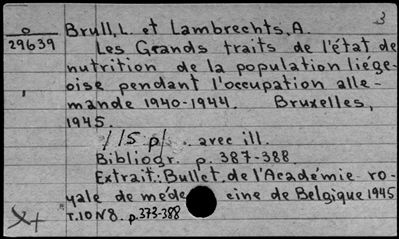 3
0
29639
Brull, L. et Lambrechts, A.
Les Grands traits de l'état de
nutrition de la population liége-
oise pendant l'occupation alle-
mande 1940-1944. Bruxelles,
1945.
115 p. . avec ill.
Bibliogr. p. 387-388
Extrait: Bullet. de l'Académie ro-
yale de méde cine de Belgique 1945
T.10 N8. p. 373-388